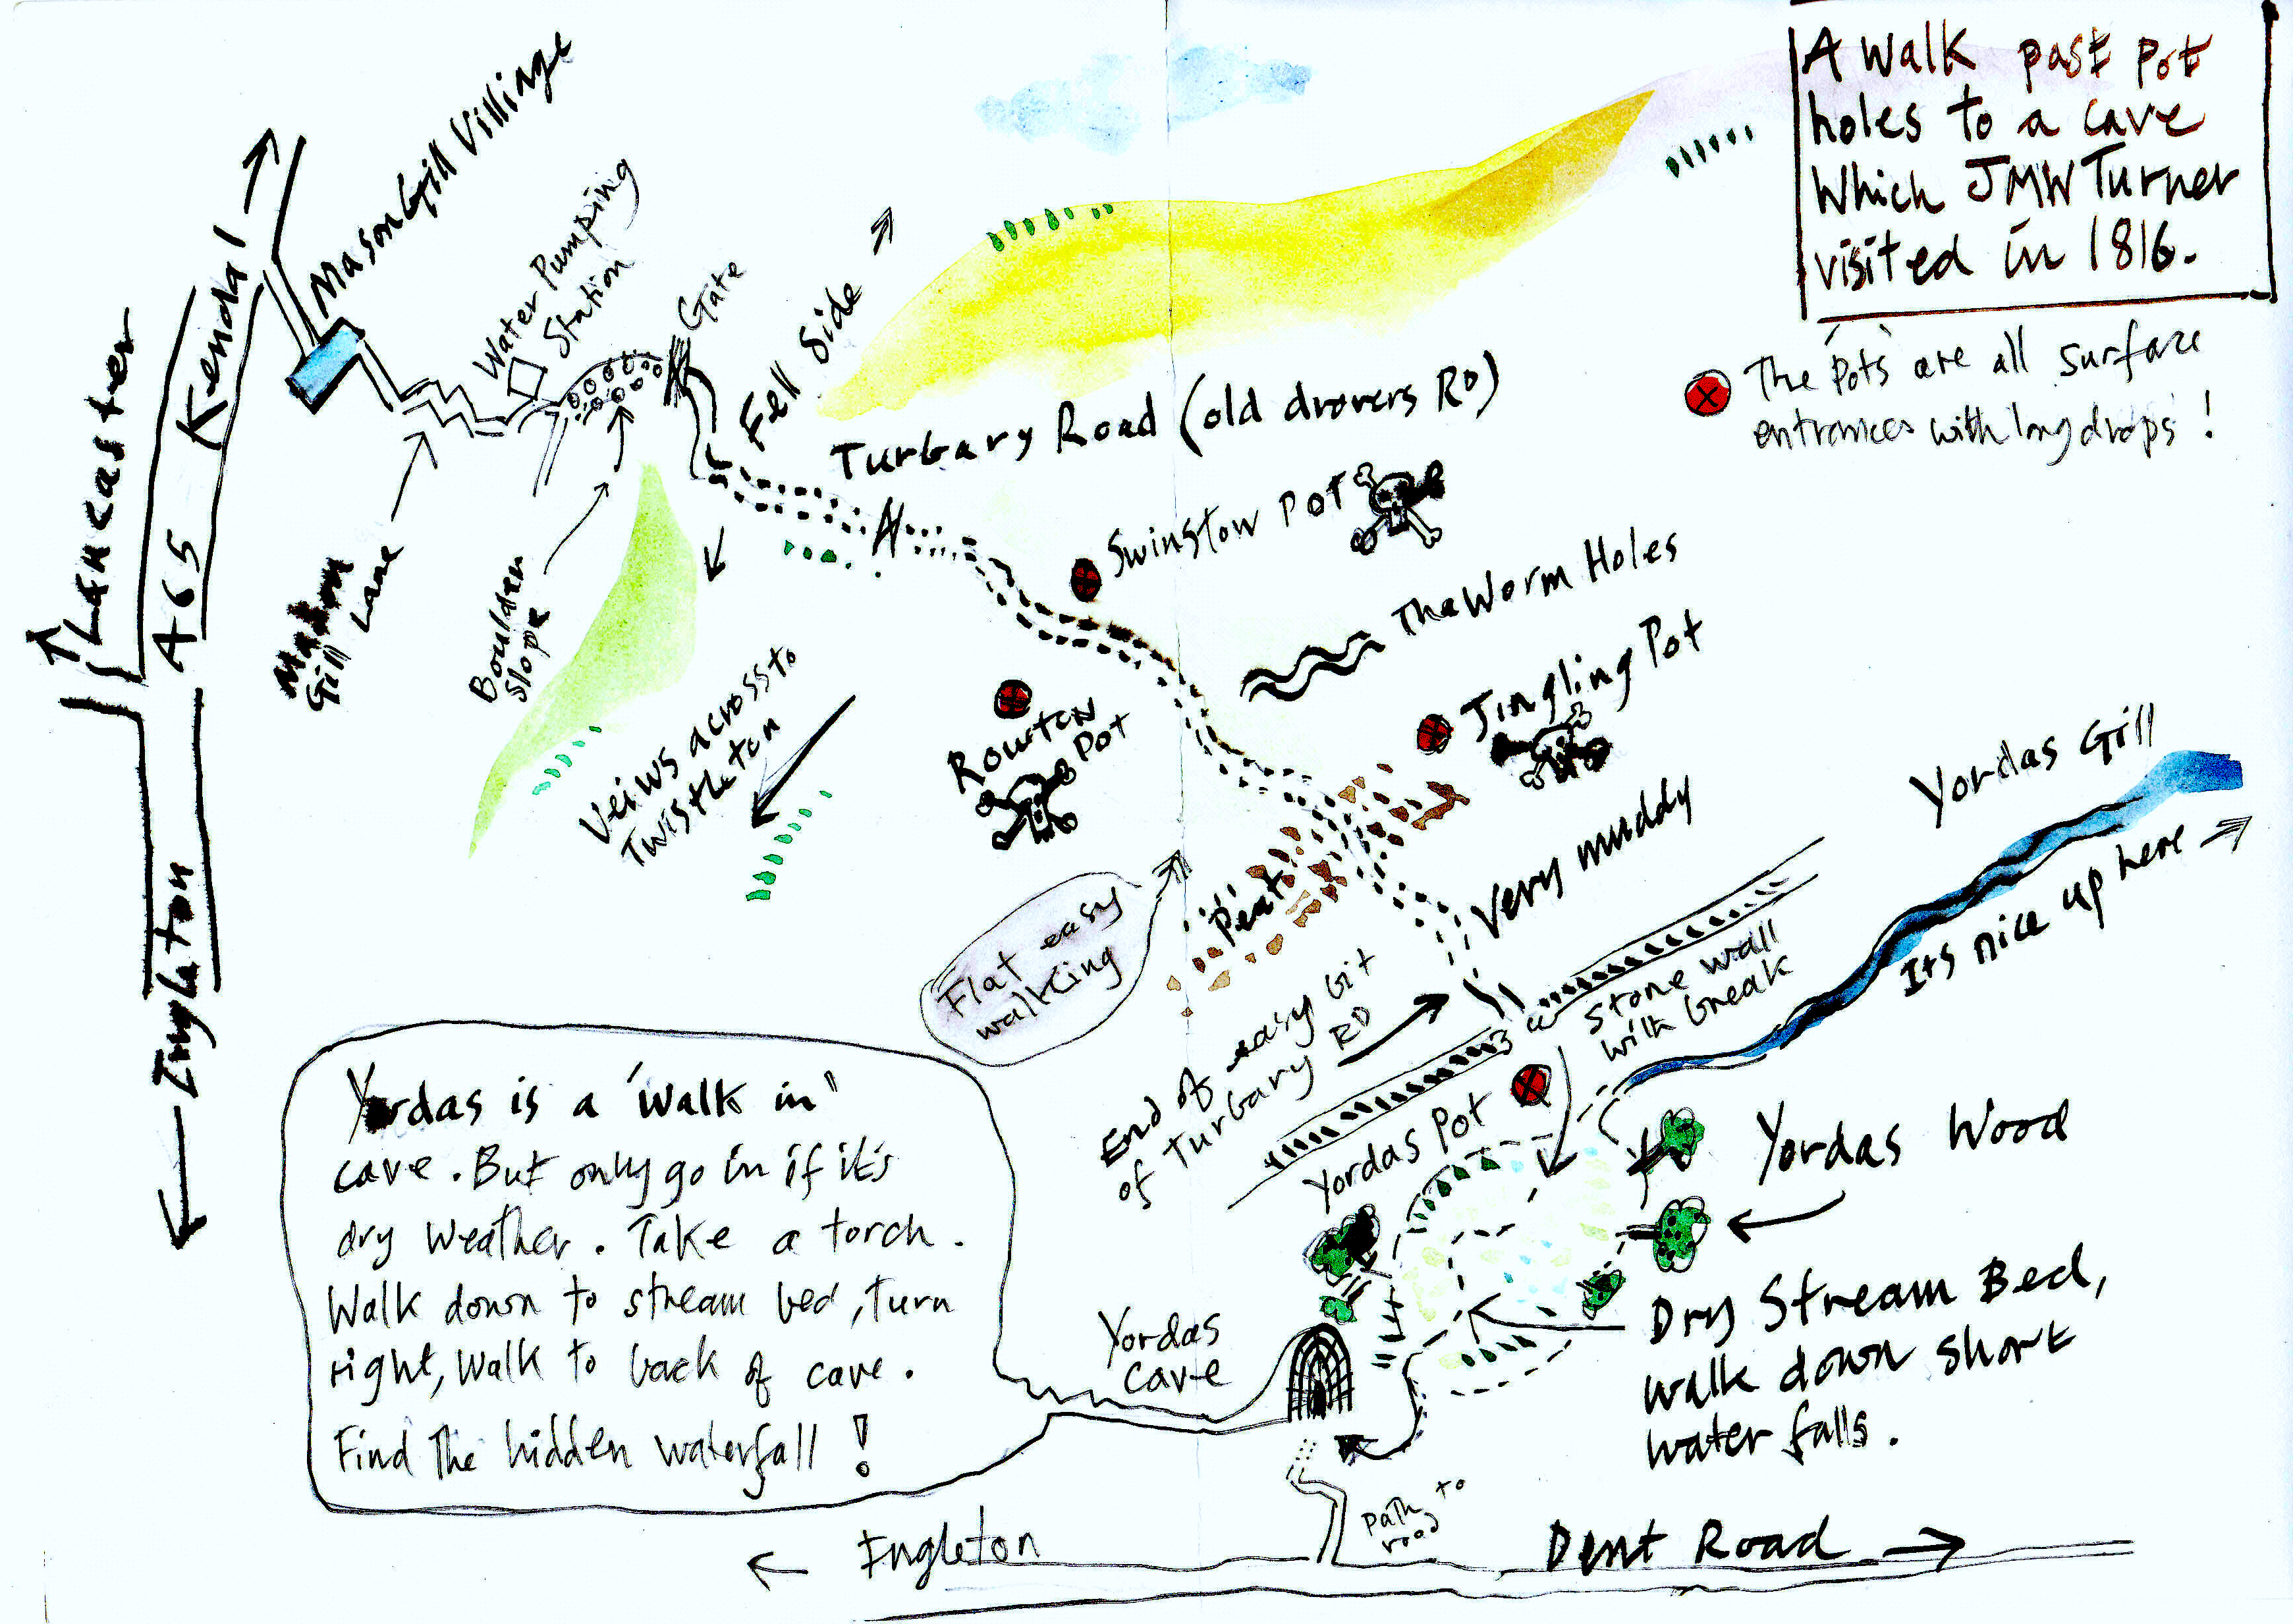 A walk past pot
holes to a cave
Which JMW Turner
visited in 1816.
The 'pots' are all surface
entrances with long drops!
Mason Gill Villinge
Water Pumping
Station
Gate
Fell Side
Kendal
A65
Lancaster
Ingleton
Mason
Gill
Lane
Boulder
Slope
Turbary Road (old drovers RD)
Swinstow Pot
The Worm Holes
Jingling Pot
Rowten
Pot
Veiws across to
Twistleton
Flat easy
walking
Peat
Very muddy
End of easy bit
of Turbary RD
Stone wall
with break
Yordas Gill
Its nice up here
Yordas Pot
Yordas Wood
Dry Stream Bed,
walk down short
water falls.
Yordas
cave
Yordas is a 'walk in'
cave. But only go in if it's
dry weather. Take a torch.
Walk down to stream bed, turn
right, walk to back of cave.
Find The hidden waterfall!
path to
road
Ingleton
Dent Road